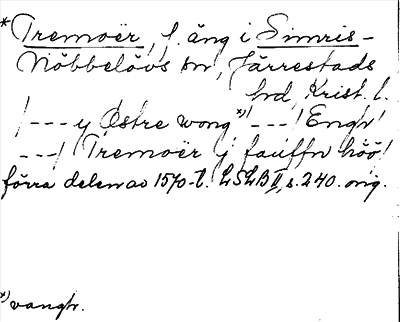 * Tremoër, f. äng i Simris-
Nöbbelövs sn, Järrestads
hd, Krist. l.
/--- y Østre wong *) /---/ Engh/
---/ Tremoër ÿ fauffn höö/
förra delen av 1570-t. LSLB II, s. 240. orig.
*) vangh.